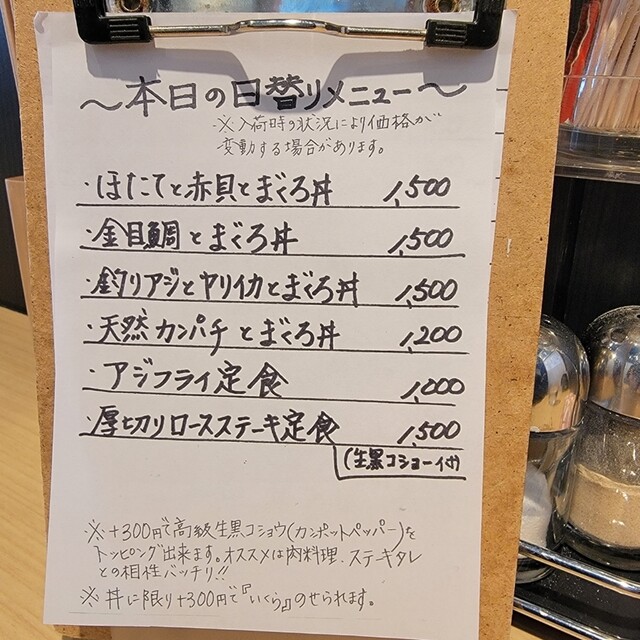 ～本日の日替りメニュー～
※入荷時の状況により価格が
変動する場合があります。
・ほたてと赤貝とまぐろ丼 1,500
・金目鯛とまぐろ丼 1,500
・釣りアジとヤリイカとまぐろ丼 1,500
・天然カンパチとまぐろ丼 1,200
・アジフライ定食 1,000
・厚切りロースステーキ定食 1,500
(生黒コショー付)
※+300円で高級生黒コショウ(カンポットペッパー)を
トッピング出来ます。オススメは肉料理、ステーキタレ
との相性バッチリ!!
※丼に限り+300円で『いくら』のせられます。